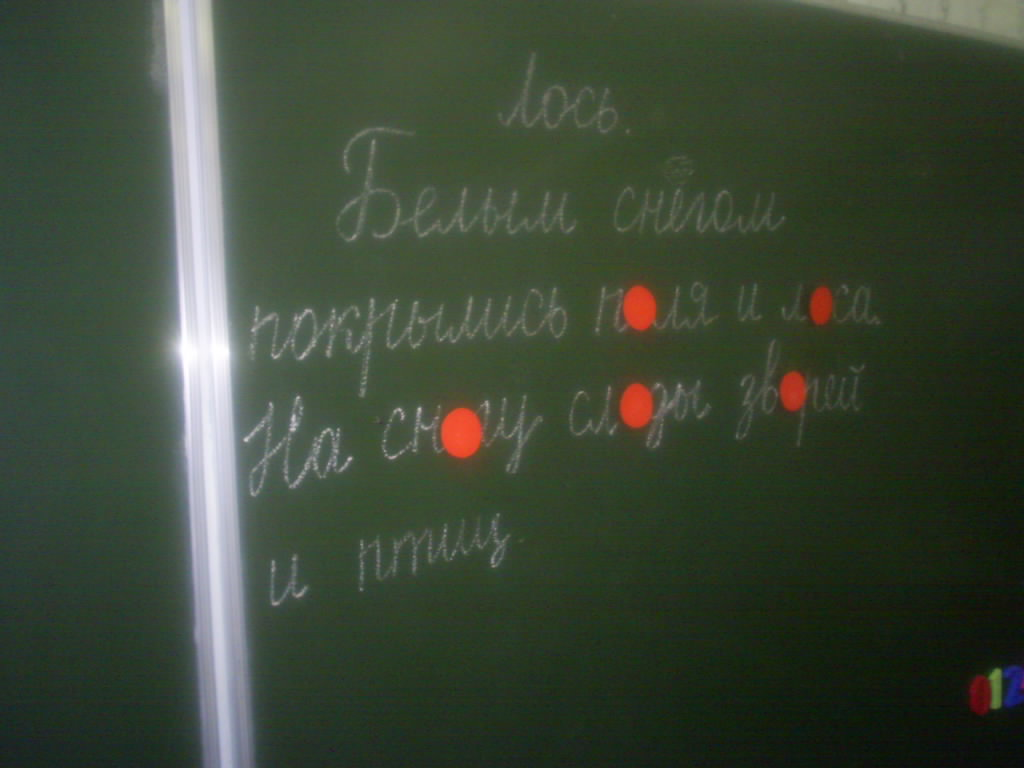 Лось.
Белым снегом
покрылись п●ля и л●са.
На сн●гу сл●ды зв●рей
и птиц.
012